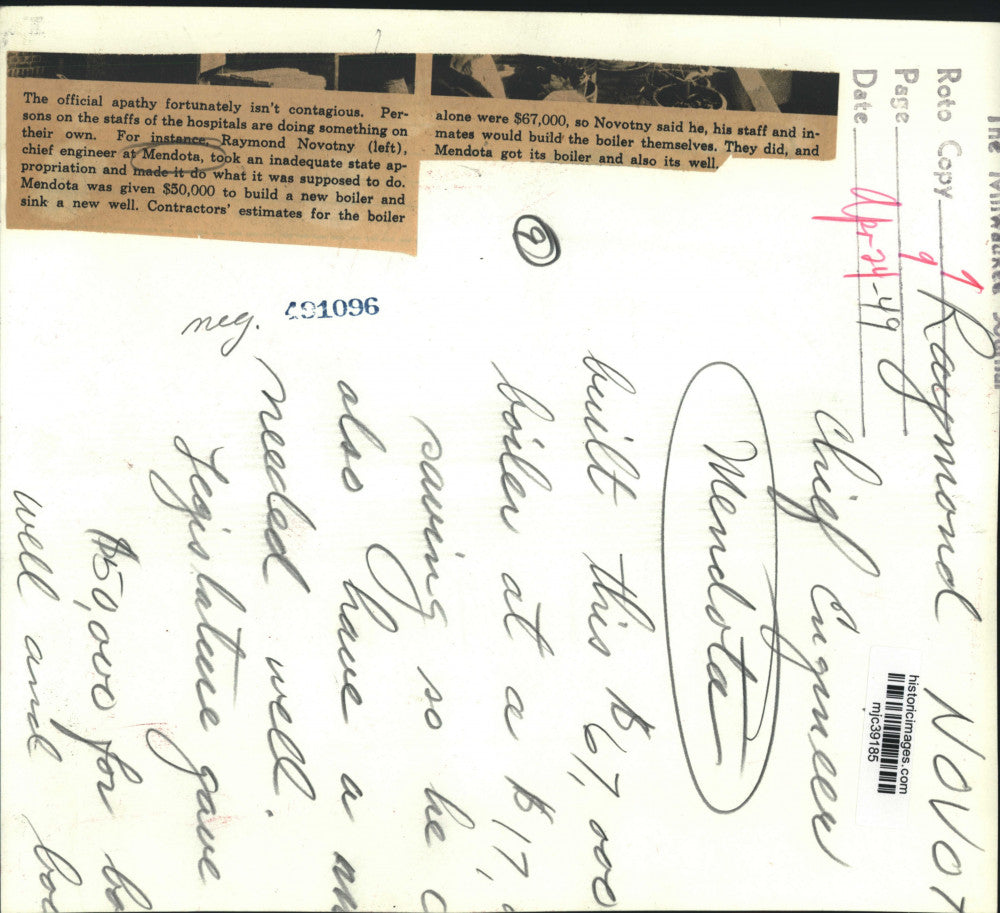 The official apathy fortunately isn't contagious. Per-
sons on the staffs of the hospitals are doing something on
their own. For instance, Raymond Novotny (left),
chief engineer at Mendota, took an inadequate state ap-
propriation and made it do what it was supposed to do.
Mendota was given $50,000 to build a new boiler and
sink a new well. Contractors' estimates for the boiler
alone were $67,000, so Novotny said he, his staff and in-
mates would build the boiler themselves. They did, and
Mendota got its boiler and also its well.
9
neg. 491096
The Milwaukee Journal
Roto Copy 9
Page 9
Date Apr-24-49
Raymond NOVOT
Chief Engineer
Mendota
built this $67,000
boiler at a $17,
saving so he c
also have a
needed well.
Legislature gave
$50,000 for bo
well and boi
historicimages.com
mjc39185